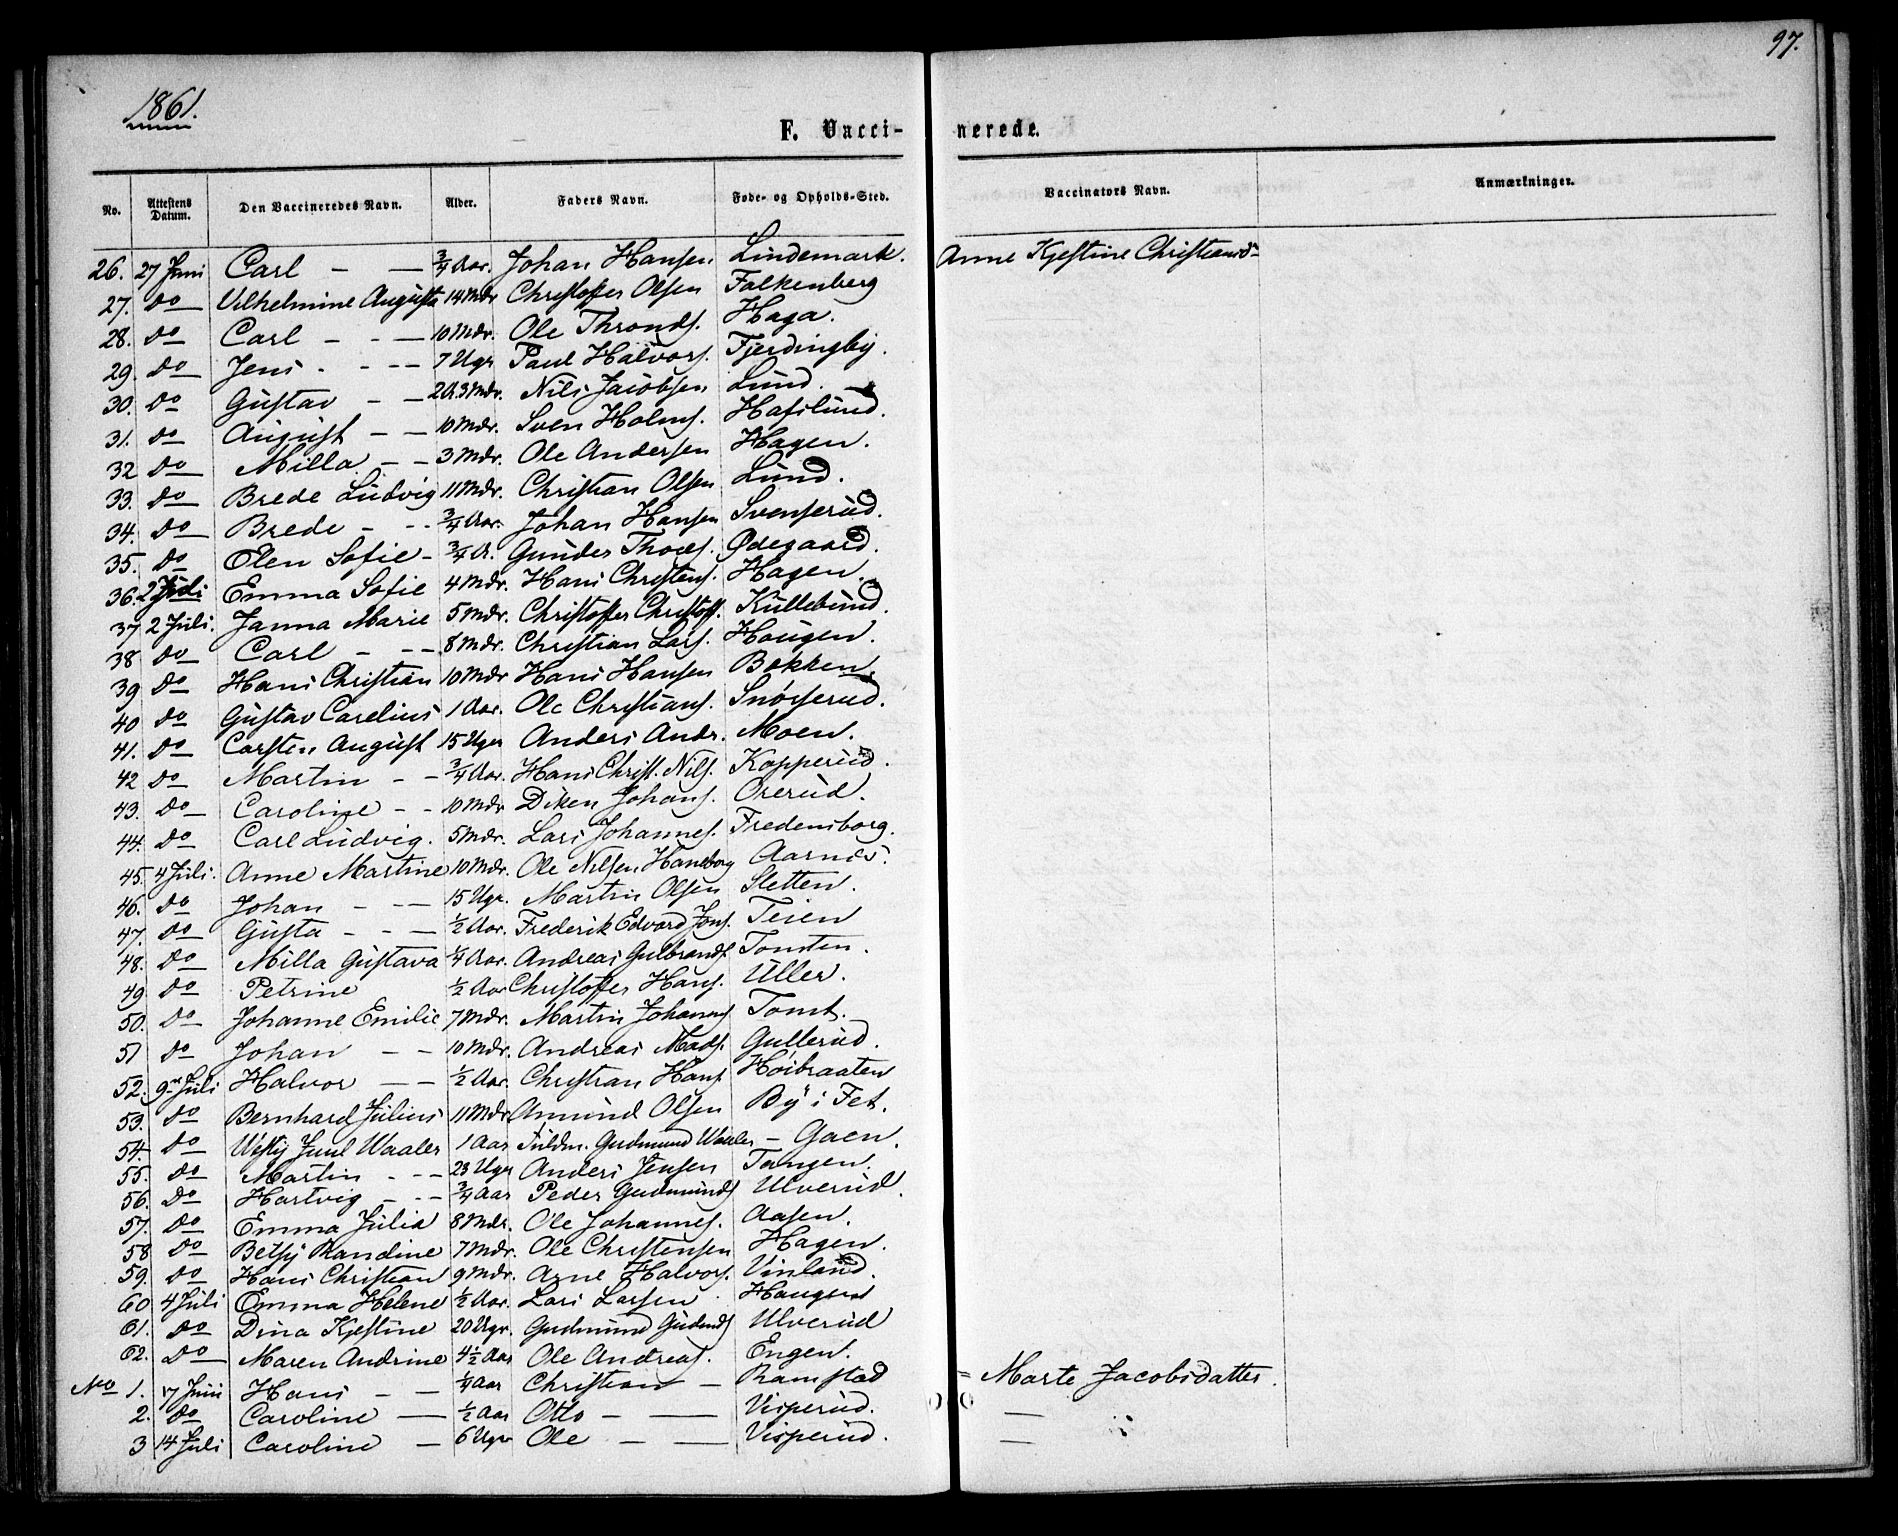 97.
1861.
F. Vaccinerede.
No. Attestens Datum. Den Vaccineredes Navn. Alder. Faders Navn. Føde- og Opholds-Sted. Vaccinators Navn. Anmærkninger.
26. 27 Juni Carl - — 3/4 Aar. Johan Hansen Lindemark. Anne Kjestine Christiansd-
27. do Vilhelmine Augusta 14 Mdr Christoffer Olsen Falkenberg
28. do Carl - - — 10 Mdr. Ole Thronds. Haga.
29. do Jens - - - — 7 Ugr Paul Halvors. Fjerdingby.
30. do Gustav - — 2 A 3 Mdr. Nils Jacobsen Lund.
31. do August - - 10 Mdr. Sven Holms. Hafslund.
32 do Milla - - 3 Mdr. Ole Andersen Hagen.
33. do Brede Ludvig 11 Mdr. Christian Olsen Lund.
34. do Brede - - - 3/4 Aar. Johan Hansen Svenserud.
35. do Elen Sofie - 3/4 A. Gunder Thoes. Ødegaard.
36. 2 Juli Emma Sofie 4 Mdr. Hans Christens. Hagen.
37. 2 Juli. Janna Marie 5 Mdr. Christoffer Christoff. Kullebund.
38 do Carl - - - 8 Mdr. Christian Lars. Haugen.
39 do Hans Christian 10 Mdr Hans Hansen Bakken.
40 do Gustav Carelius 1 Aar. Ole Christians. Snørserud.
41. do Carsten August 15 Uger Anders Andr. Moen.
42 do Martin - - 3/4 Aar. Hans Christ. Nils. Kopperud.
43. do Caroline - - 10 Mdr Diken Johans. Ørerud.
44. do Carl Ludvig. 5 Mdr. Lars Johannes. Fredensborg.
45. 4 Juli. Anne Martine 10 Mdr. Ole Nilsen Haneborg Aarnes.
46. do Johan - - — 15 Ugr. Martin Olsen Sletten.
47. do Gusta - - — 1/2 Aar. Frederik Edvard Jons. Teien
48. do Milla Gustava 1/4 Aar. Andreas Gulbrands. Tomten.
49 do Petrine 1/2 Aar Christoffer Hans. Uller.
50. do Johanne Emilie 7 Mdr. Martin Johanns Tomt.
51 do Johan - - 10 Mdr. Andreas Mads. Gullerud.
52. 9. Juli Halvor - — 1/2 Aar. Christian Hans. Høibraaten
53. do Bernhard Julius 11 Mdr Amund Olsen By i Fet.
54. do Juul Waaler 1 Aar Fuldm. Gudmund Waaler - Gaen.
55. do Martin - - - 23 Uger Anders Jensen Tangen.
56. do Hartvig - - - 3/4 Aar Peder Gudmunds Ulverud.
57. do Emma Julia 8 Mdr. Ole Johannes. Aasen.
58 do Betsy Randine 7 Mdr. Ole Christensen Hagen.
59. do Hans Christian 9 Mdr. Arne Halvors. Vinland.
60 4 Juli Emma Helene 1/2 Aar. Lars Larsen Haugen
61. do Dina Kjestine 20 Ugr. Gudmund Gudmds Ulverud
62. do Maren Andrine 4 1/2 Aar Ole Andreas. Engen.
No 1. 7 Juni Hans - — 1/4 Aar Christian — Ramstad = Marte Jacobsdatter.
2. do Caroline — 1/2 Aar Otto - — Visperud. —
3 14 Juli Caroline — 6 Ugr Ole - — Visperud. —